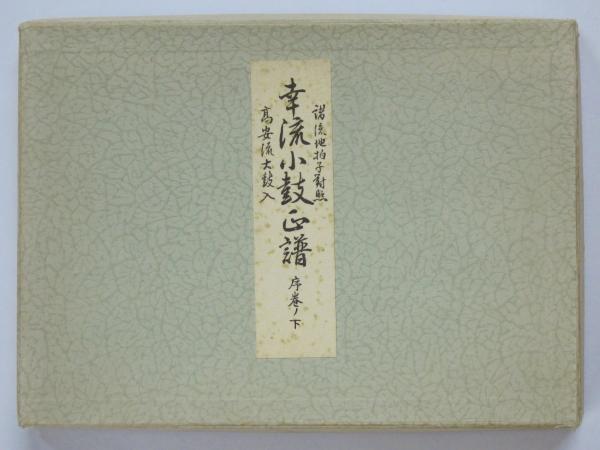 諸流地拍子対照
幸流小鼓正譜 序巻ノ下
高安流大鼓入